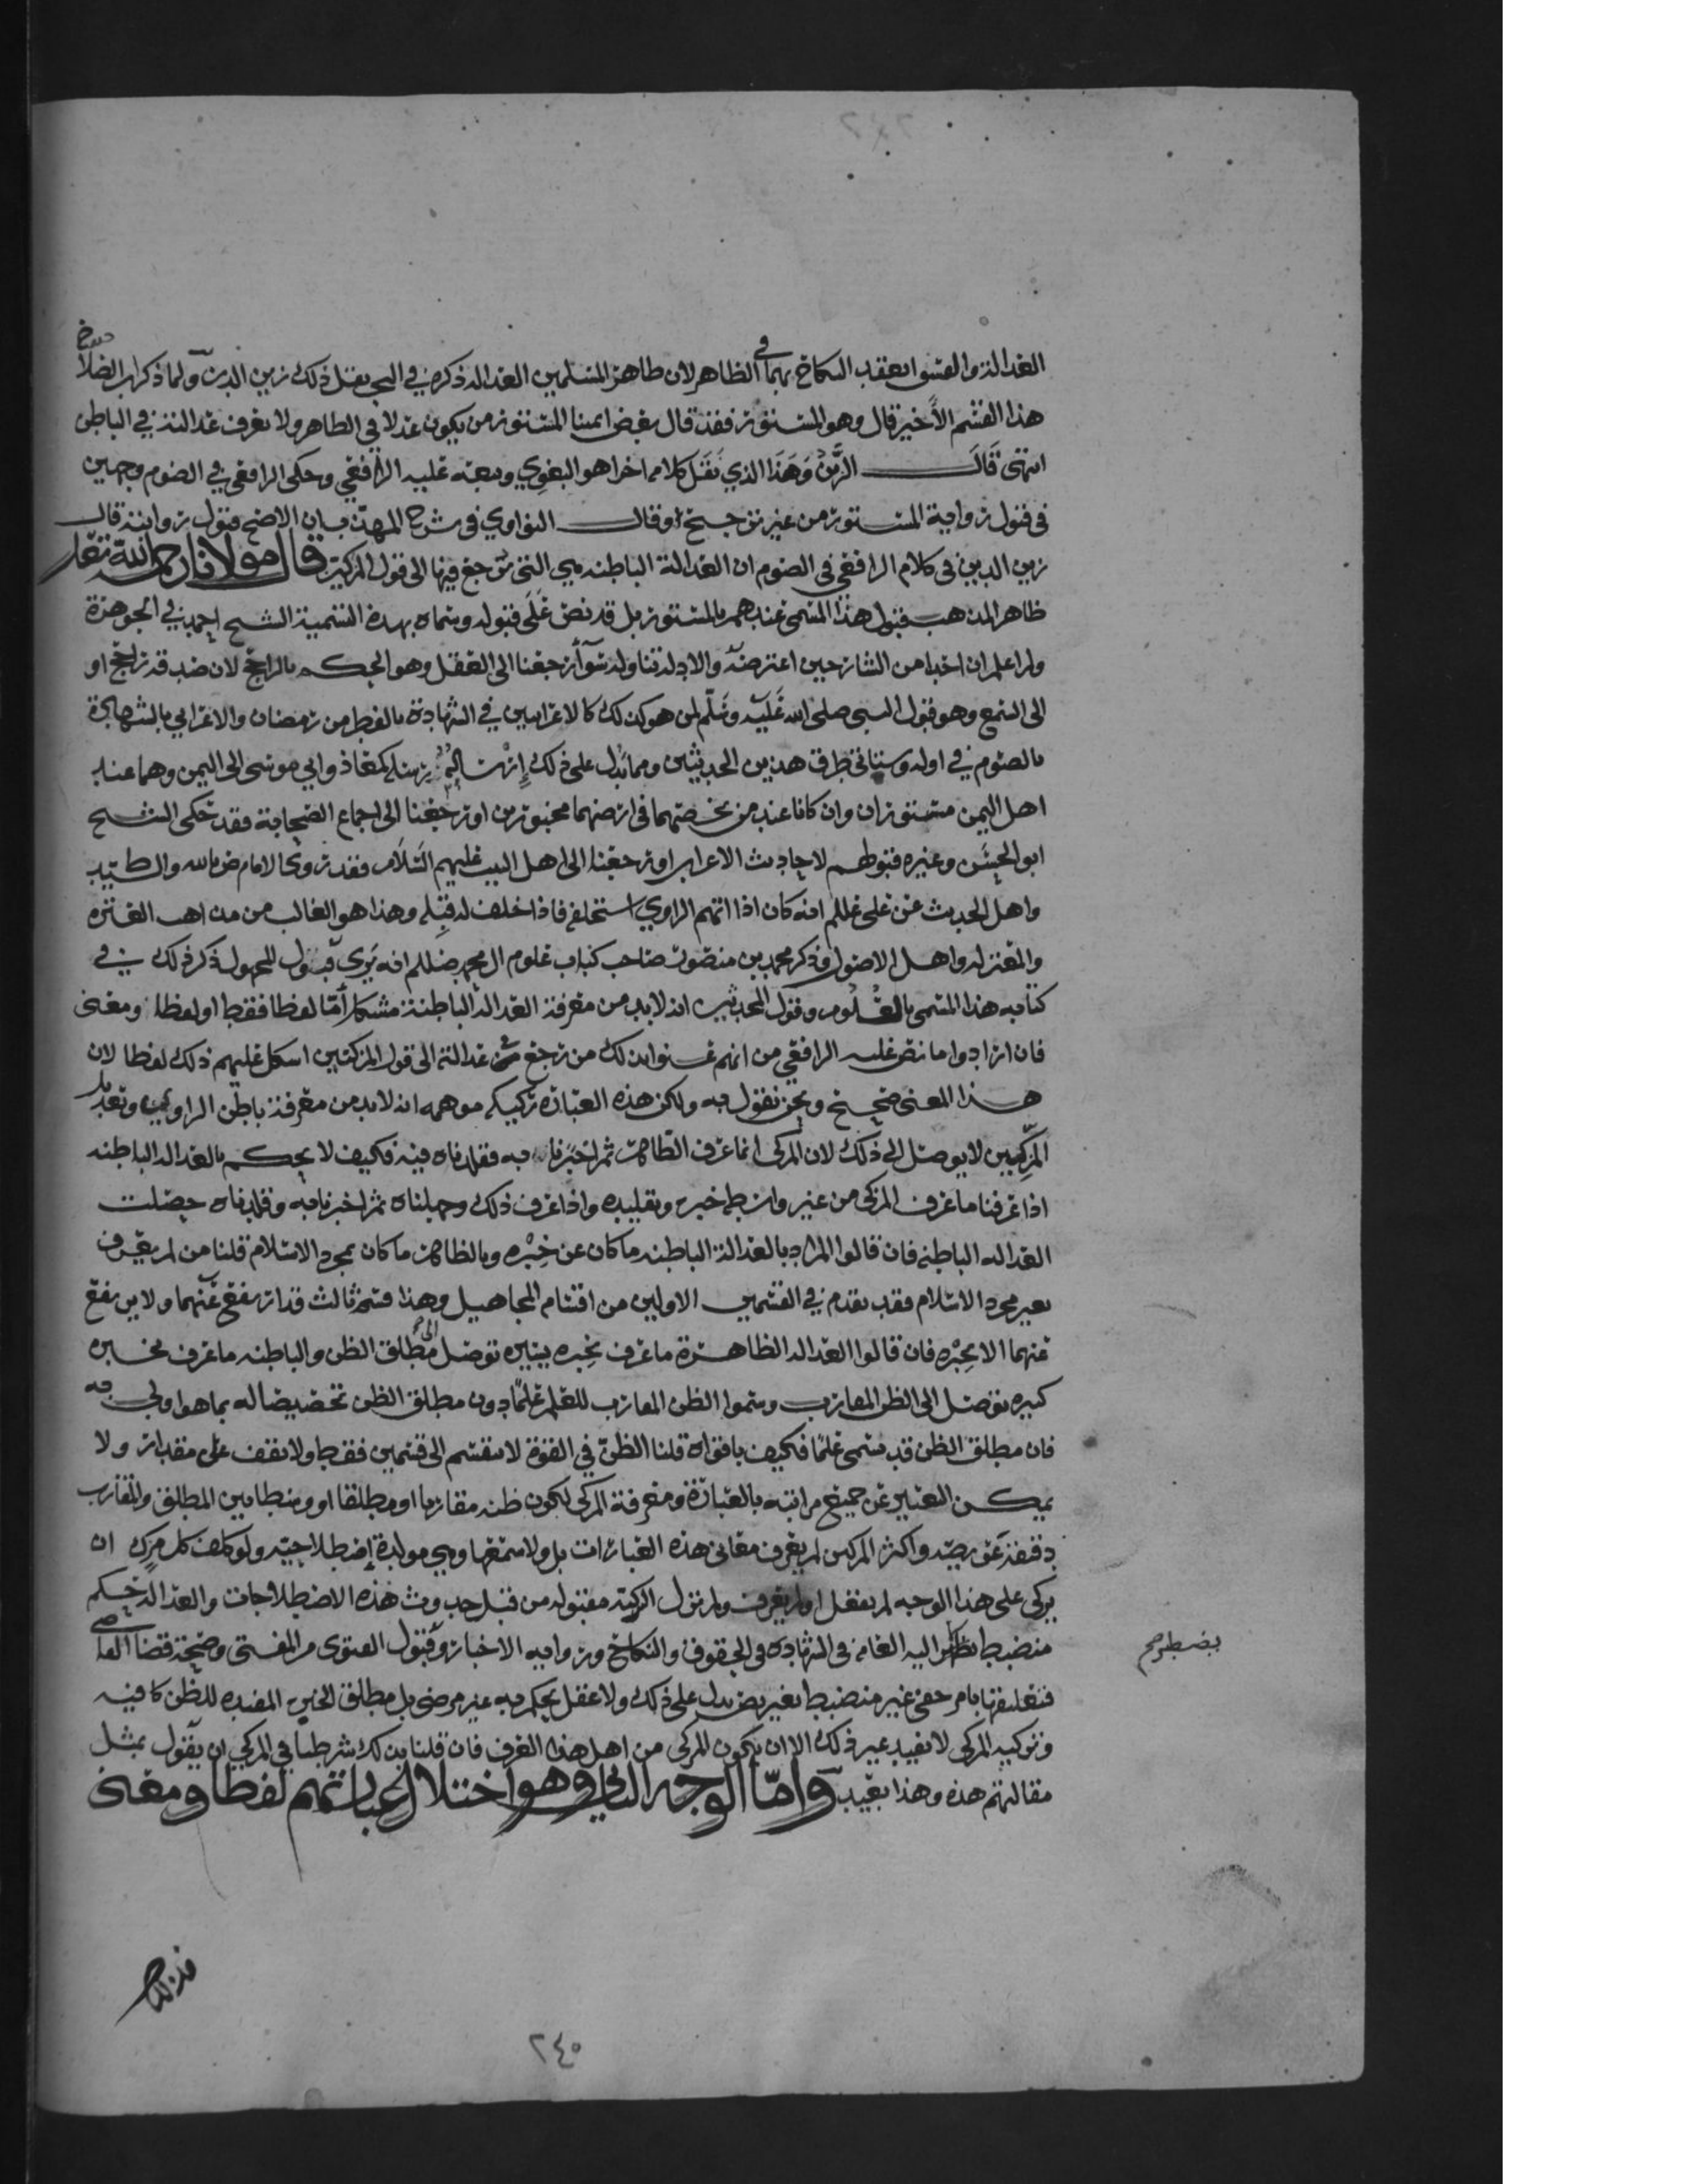 العدالة والفسق انعقد النكاح بهما في الظاهر لان ظاهر المسلمين العدالة ذكره في البحر نقل ذلك زين الدين ولما ذكر ابن الصلاح
هذا القسم الأخير قال وهو المستور فقد قال بعض ائمتنا المستور من يكون عدلا في الظاهر ولا تعرف عدالته في الباطن
انتهى قال الزين وهذا الذي نقل كلامه اخرا هو البغوي وتبعه عليه الرافعي وحكى الرافعي في الصوم وجهين
في قبول رواية المستور من غير ترجيح وقال النواوي في شرح المهذب بان الاصح قبول روايته قال
زين الدين في كلام الرافعي في الصوم ان العدالة الباطنة هي التي ترجع فيها الى قول المزكين قال مولانا رحمه الله تعالى
ظاهر المذهب قبول هذا المسمى عندهم بالمستور بل قد نص على قبوله وسماه بهذه التسمية الشيخ احمد في الجوهرة
ولم اعلم ان احدا من الشارحين اعترضه والادلة تتناوله سوآ رجعنا الى العقل وهو الحكم بالراجح لان صدقه راجح او
الى السمع وهو قبول النبي صلى الله عليه وسلم لمن هو كذلك كالاعرابيين في الشهادة بالفطر من رمضان والاعرابي بالشهادة
بالصوم في اوله وستاتي طرق هذين الحديثين ومما يدل على ذلك إرساله رسله كمعاذ وابي موسى الى اليمن وهما عند
اهل اليمن مستوران وان كانا عند من يخصهما في ارضهما مخبورين او رجعنا الى اجماع الصحابة فقد حكى الشيخ
ابو الحسين وغيره قبولهم لاحاديث الاعراب او رجعنا الى اهل البيت عليهم السلام فقد روى الامام ض بالله والسيد
واهل الحديث عن علي علم انه كان اذا اتهم الراوي استحلفه فاذا حلف له قبله وهذا هو الغالب من مذاهب العترة
والمعتزلة واهل الاصول وذكر محمد بن منصور صاحب كتاب علوم ال محمد صللم انه يرى قبول المجهول ذكر ذلك في
كتابه هذا المسمى بالعلوم وقول المحدثين انه لابد من معرفة العدالة الباطنة مشكل أمّا لفظا فقط او لفظا ومعنى
فان ارادوا ما نص عليه الرافعي من انهم عنوا بذلك من رجع في عدالته الى قول المزكيين اشكل عليهم ذلك لفظا لان
هذا المعنى صحيح ونحن نقول به ولكن هذه العبارة ركيكه موهمه انه لابد من معرفة باطن الراوي وتعديل
المزكيين لا يوصل الى ذلك لان المزكي انما عرف الظاهر ثم اخبرنا به فقلدناه فيه فكيف لا يحكم بالعدالة الباطنه
اذا عرفنا ما عرف المزكي من غير واسطة خبره وتقليده واذا عرف ذلك وجهلناه ثم اخبرنا به وقلدناه حصلت
العدالة الباطنة فان قالوا المراد بالعدالة الباطنه ما كان عن خبره وبالظاهر ما كان بمجرد الاسلام قلنا من لم يعرف
بغير مجرد الاسلام فقد تقدم في القسمين الاولين من اقسام المجاهيل وهذا قسم ثالث قد ارتفع عنهما ولا يرتفع
عنهما الا بخبره فان قالوا العدالة الظاهرة ما عرف بخبره يسيره توصل الى مطلق الظن والباطنه ما عرف بخبره
كبيره توصل الى الظن المقارب وسموا الظن المقارب للعلم علماً دون مطلق الظن تخصيصا له بما هو اولى به
فان مطلق الظن قد سمى علماً فكيف باقواه قلنا الظن في القوة لا ينقسم الى قسمين فقط ولا يقف على مقدار ولا
يمكن التعبير عن جميع مراتبه بالعبارة ومعرفة المزكي لكون ظنه مقاربا او مطلقا او وسطا بين المطلق والمقارب
دقيقة عويصه واكثر المزكين لم يعرف معاني هذه العبارات بل ولا سمعها وهي مولدة إصطلاحيه ولو كلف كل مزك ان
يزكي على هذا الوجه لم يعقل او لم يعرف ولم تزل التزكية مقبوله من قبل حدوث هذه الاصطلاحات والعدالة حكم
منضبط تضطر اليه العامة في الشهادة في الحقوق والنكاح ورواية الاخبار وقبول الفتوى من المفتى وصحة قضا القاضي
فتعليقها بامر خفي غير منضبط بغير نص يدل على ذلك ولا عقل يحكم به غير مرضي بل مطلق الخبره المفيده للظن كافيه
وتزكيه المزكي لا تفيد غير ذلك الا ان يكون المزكي من اهل هذا العرف فان قلنا بذلك شرطنا في المزكي ان يقول بمثل
مقالتهم هذه وهذا بعيد وامّا الوجه الثاني وهو اختلال عباراتهم لفظا ومعنى
يضطر صح
٢٤٠